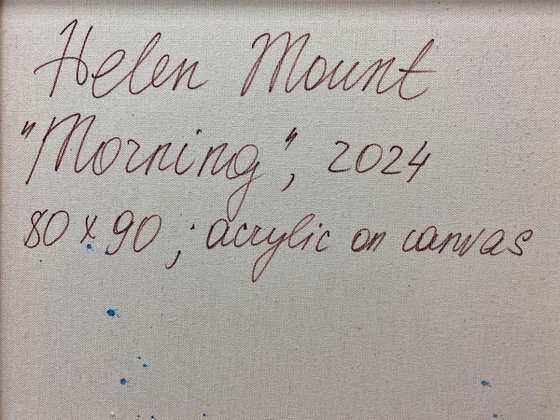 Helen Mount
"Morning", 2024
80 x 90 ; acrylic on canvas